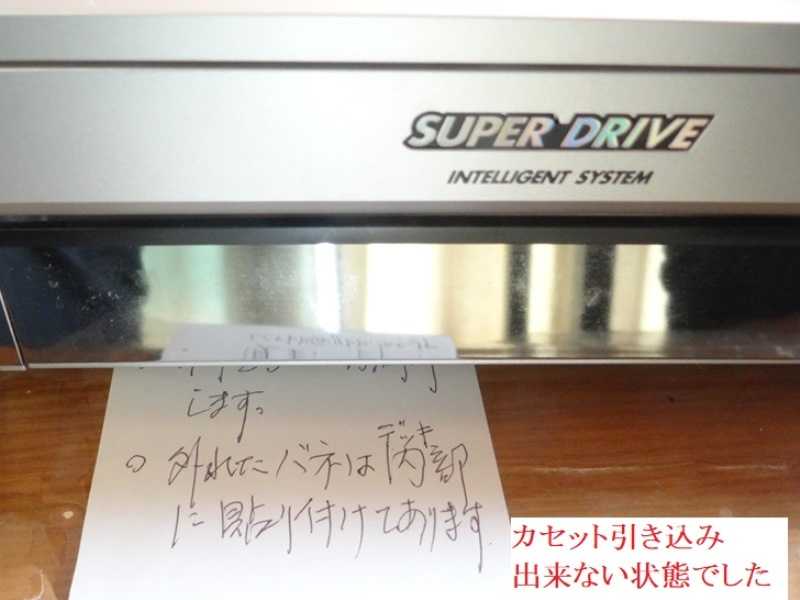 SUPER DRIVE
INTELLIGENT SYSTEM
します。
○ 外れたバネはデッキ内部
に貼り付けてあります
カセット引き込み
出来ない状態でした